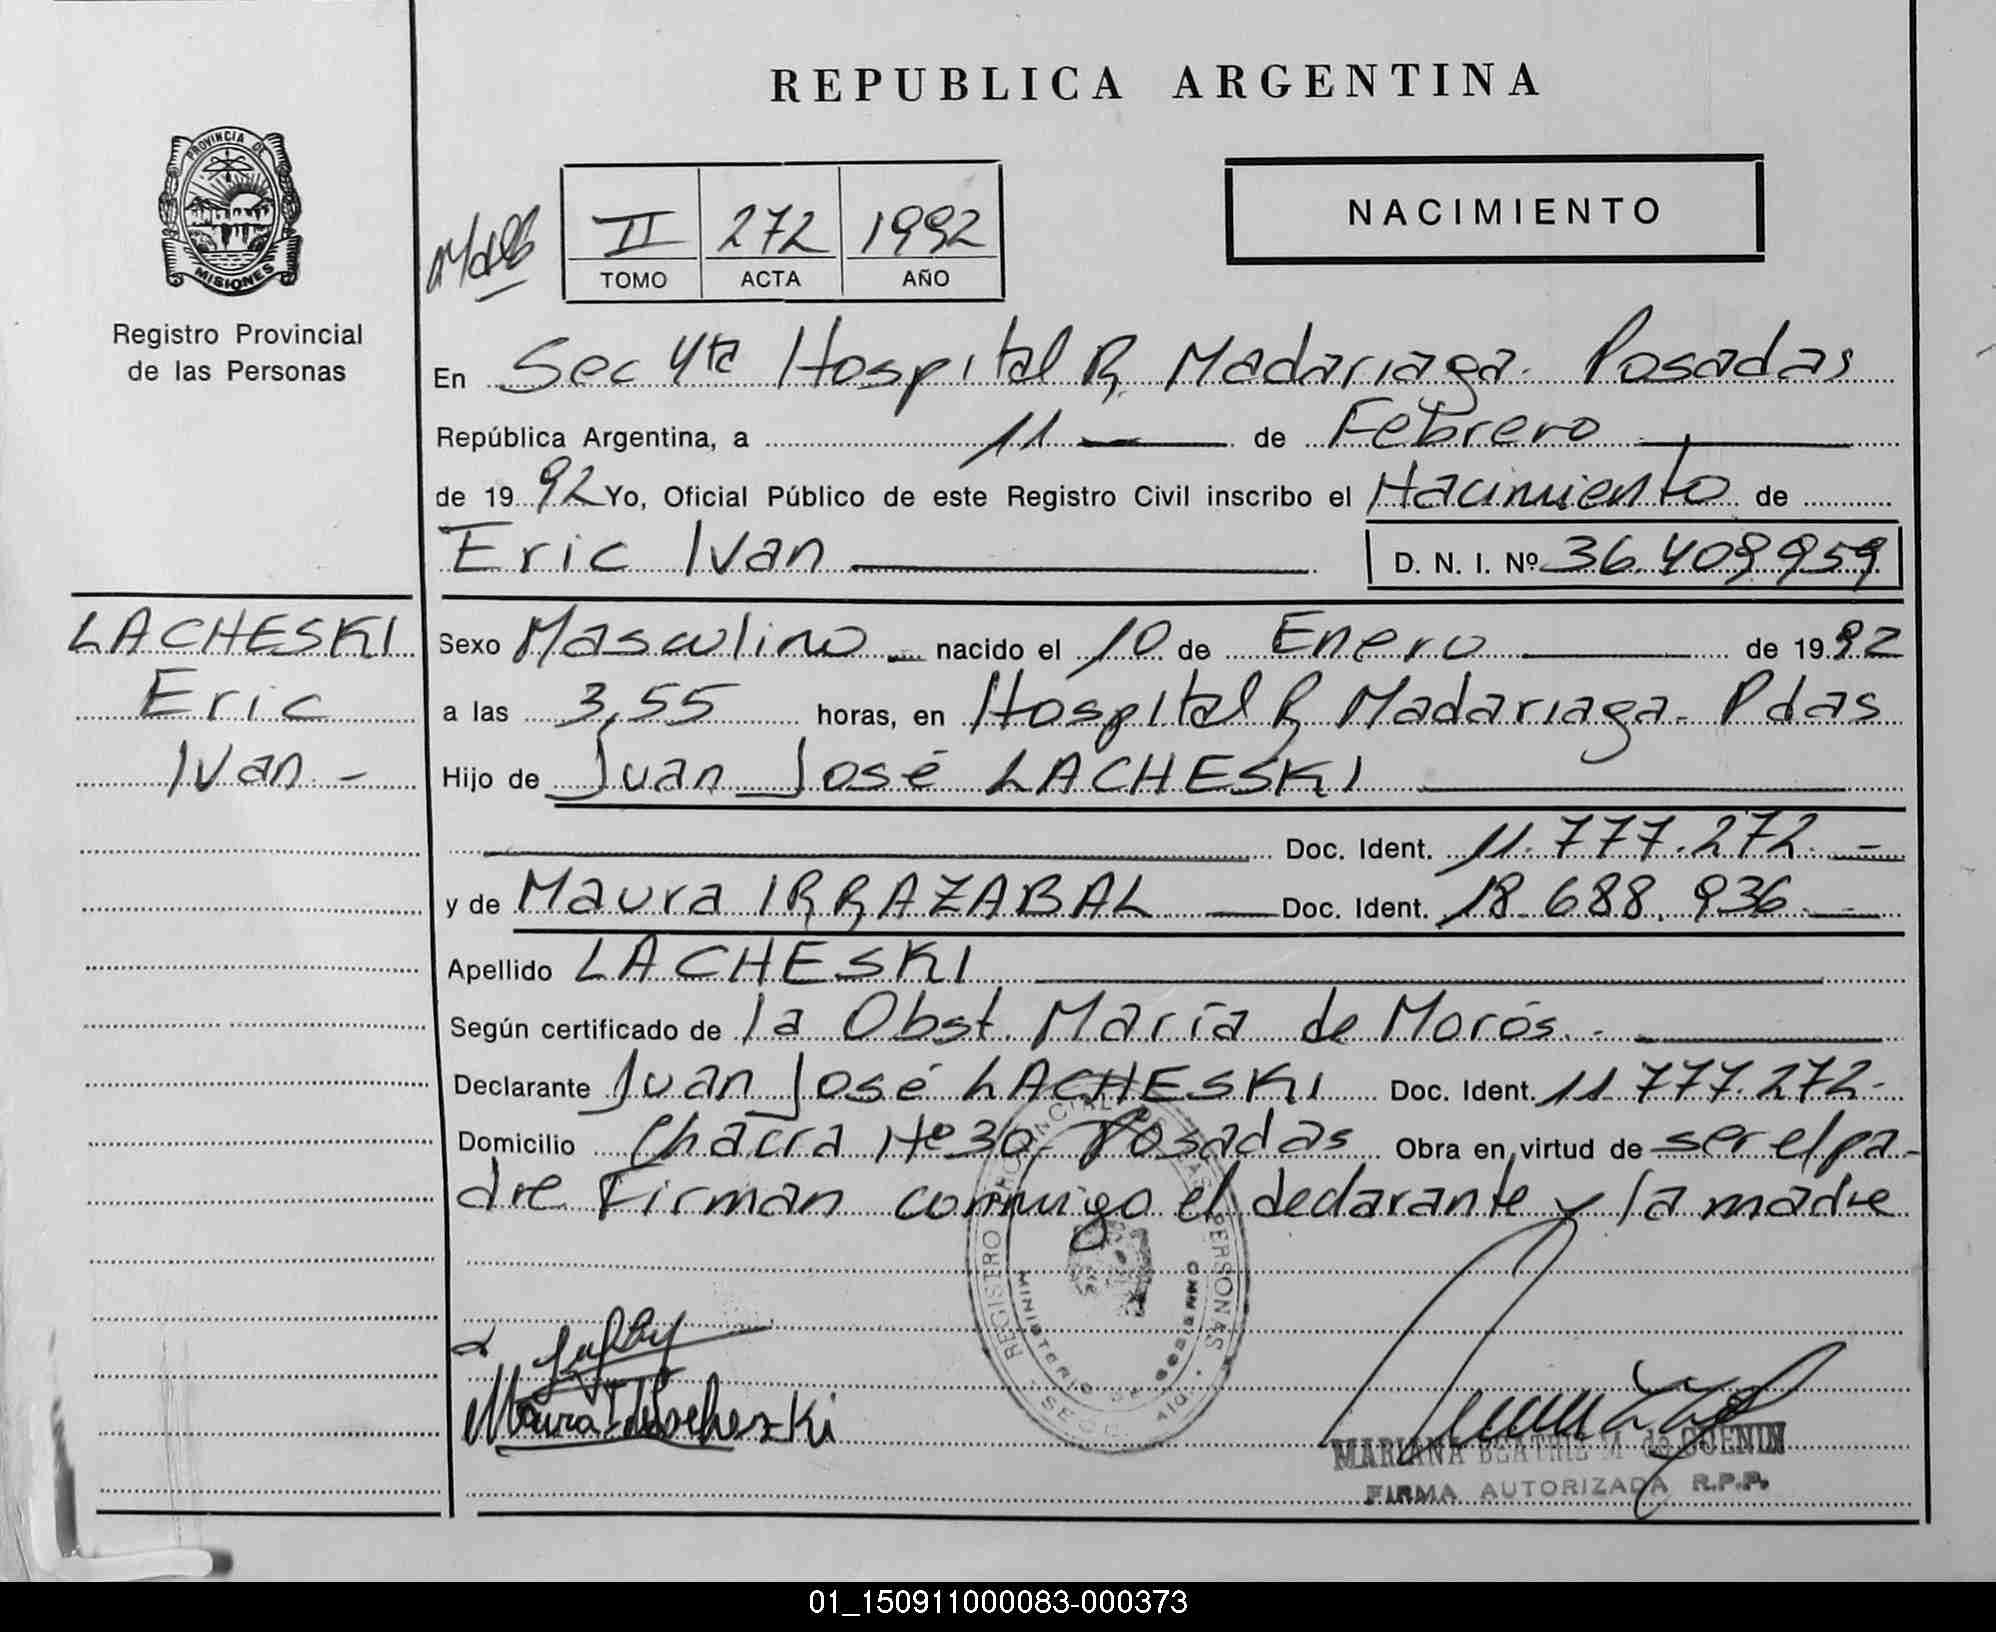 REPUBLICA ARGENTINA
PROVINCIA DE
MISIONES
Registro Provincial
de las Personas
II 272 1992
TOMO ACTA AÑO
NACIMIENTO
En Sec 4ta Hospital R. Madariaga. Posadas
República Argentina, a 11 de Febrero
de 1992 Yo, Oficial Público de este Registro Civil inscribo el Nacimiento de
Eric Ivan D. N. I. Nº 36.409959
LACHESKI
Eric
Ivan.-
Sexo Masculino nacido el 10 de Enero de 1992
a las 3,55 horas, en Hospital R Madariaga. Pdas
Hijo de Juan José LACHESKI
Doc. Ident. 11.777.272.-
y de Maura IRRAZABAL Doc. Ident. 18.688.936
Apellido LACHESKI
Según certificado de la Obst. María de Morós.-
Declarante Juan José LACHESKI Doc. Ident. 11.777.272-
Domicilio Chacra Nº 30 Posadas Obra en virtud de ser el pa-
dre Firman conmigo el declarante y la madre
REGISTRO PROVINCIAL DE LAS PERSONAS
MINISTERIO DE GOBIERNO
Maura I de Lacheski
MARIANA BEATRIZ M de GUENIN
FIRMA AUTORIZADA R.P.P.
01_150911000083-000373